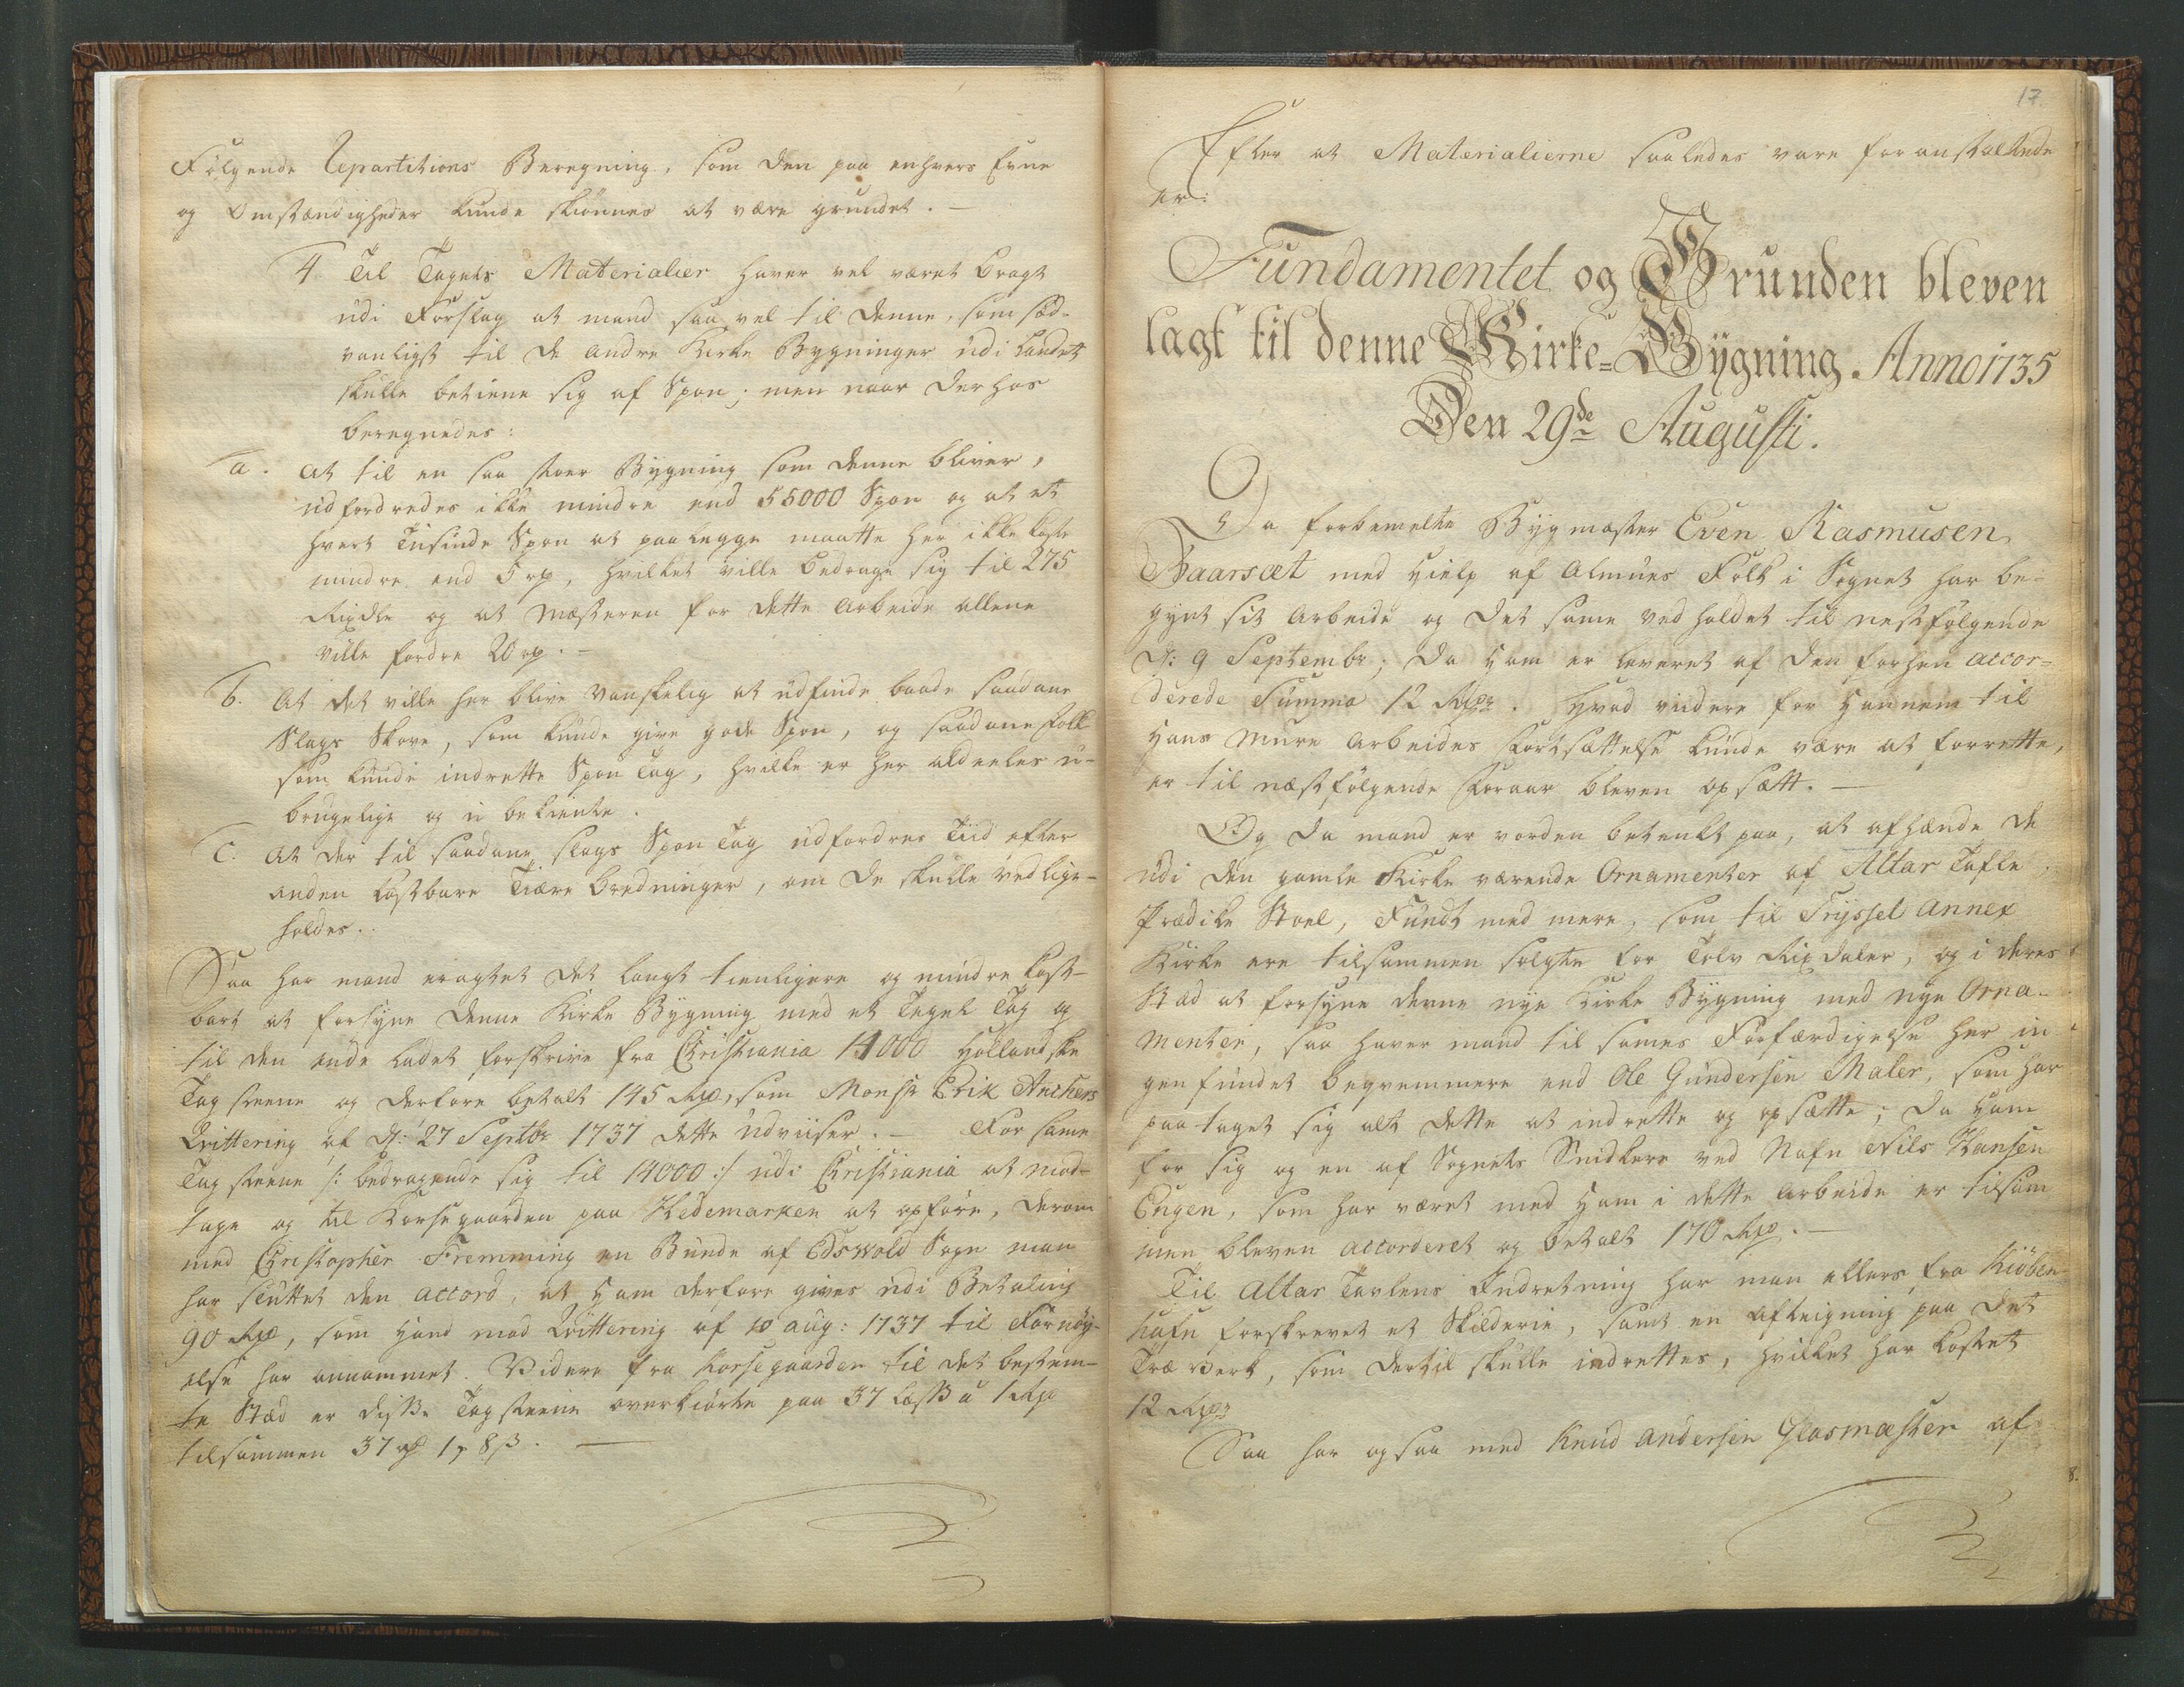 Følgende Repartitions Beregning, som den paa enhvers Evne
og Omstændigheder kunde skiønnes at være grundet. —
4 Til Tagets Materialier haver vel været bragt
udi Forslag at mand saa vel til denne, som sæd-
vanligst til de andre Kirke Bygninger udi Landet
skulle betiene sig af Spon; men naar derhos
beregnedes:
a. At til en saa stoer Bygning som denne bliver,
udfordredes ikke mindre end 55000 Spon og at et
hvert Tusinde Spon at paalegge maatte her ikke koste
mindre end 5 rp, hvilket ville bedrage sig til 275
Rixdlr og at Mæsteren for dette Arbeide allene
ville fordre 20 rp. —
b. At det ville her blive vanskelig at udfinde baade saadane
Slags Skove, som kunde give gode Spon, og saadane Folk
som kunde indrette Spon Tag, hvilke er her aldeeles u-
brugelige og u bekiente.
c. At der til saadane slags Spon Tag udfordres Tiid efter
anden kostbare Tiære Bredninger, om de skulle vedlige-
holdes.
Saa har mand eragtet det langt tienligere og mindre kost-
bart at forsyne denne Kirke Bygning med et Tegel Tag og
til den ende ladet forskrive fra Christiania 14000 Hollandske
Tag steene og derfore betalt 145 Rp, som Monsr Erik Anchers
Qvittering af D: 27 Septbr 1737 dette udviiser. — For same
Tag steene /: bedragende sig til 14000 :/ udi Christiania at mod-
tage og til Korsegaarden paa Hedemarken at opføre, derom
med Christopher Fremming en Bunde af Edswold Sogn man
har sluttet den accord, at ham derfore gives udi Betaling
90 Rp, som hand mod Qvittering af 10 aug: 1737 til Fornøy-
else har annammet. Videre fra Korsegaarden til det bestem-
te Stæd er disse Tagsteene overkiørte paa 37 Læss a 1 Rp
tilsammen 37 rp 1 8 β. —
17.
Efter at Materialierne saaledes vare foranstaltede
er:
Fundamentet og Grunden bleven
lagt til denne Kirke-Bygning. Anno 1735
Den 29de Augusti.
Da forbemelte Bygmæster Even Rasmusen
Baarsæt med Hielp af Almues Folk i Sognet har be-
gynt sit Arbeide og det same ved holdet til nestfølgende
D: 9 Septembr; da ham er leveret af den forhen accor-
derede Summa 12 Rpr. Hvad viidere for hannem til
hans Mure Arbeides Fortsættelse kunde være at forrette,
er til næstfølgende Foraar bleven opsætt. —
Og da mand er vorden betenkt paa, at afhænde de
udi den gamle Kirke værende Ornamenter af Altar Tafle,
Prædike Stoel, Fundt med mere, som til Tryssel Annex
Kirke ere tilsammen solgte for Tolv Rixdaler, og i deres
Stæd at forsyne denne nye Kirke Bygning med nye Orna-
menter, saa haver mand til sames Forfærdigelse her in-
gen fundet beqvemmere end Ole Gundersen Maler, som har
paa taget sig alt dette at indrette og opsætte; da ham
for sig og en af Sognets Snidkere ved Nafn Nils Hansen
Engen, som har været med ham i dette Arbeide er tilsam
men bleven accorderet og betalt 170 Rp. —
Til Altar Tavlens Indretning har man ellers fra Kiøben-
hafn forskrevet et Skilderie, samt en Aftegning paa det
Træ Verk, som dertil skulle indrettes, hvilket har kostet
12 Rpr
Saa har ogsaa med Knud Andersen Glasmæster af
8.